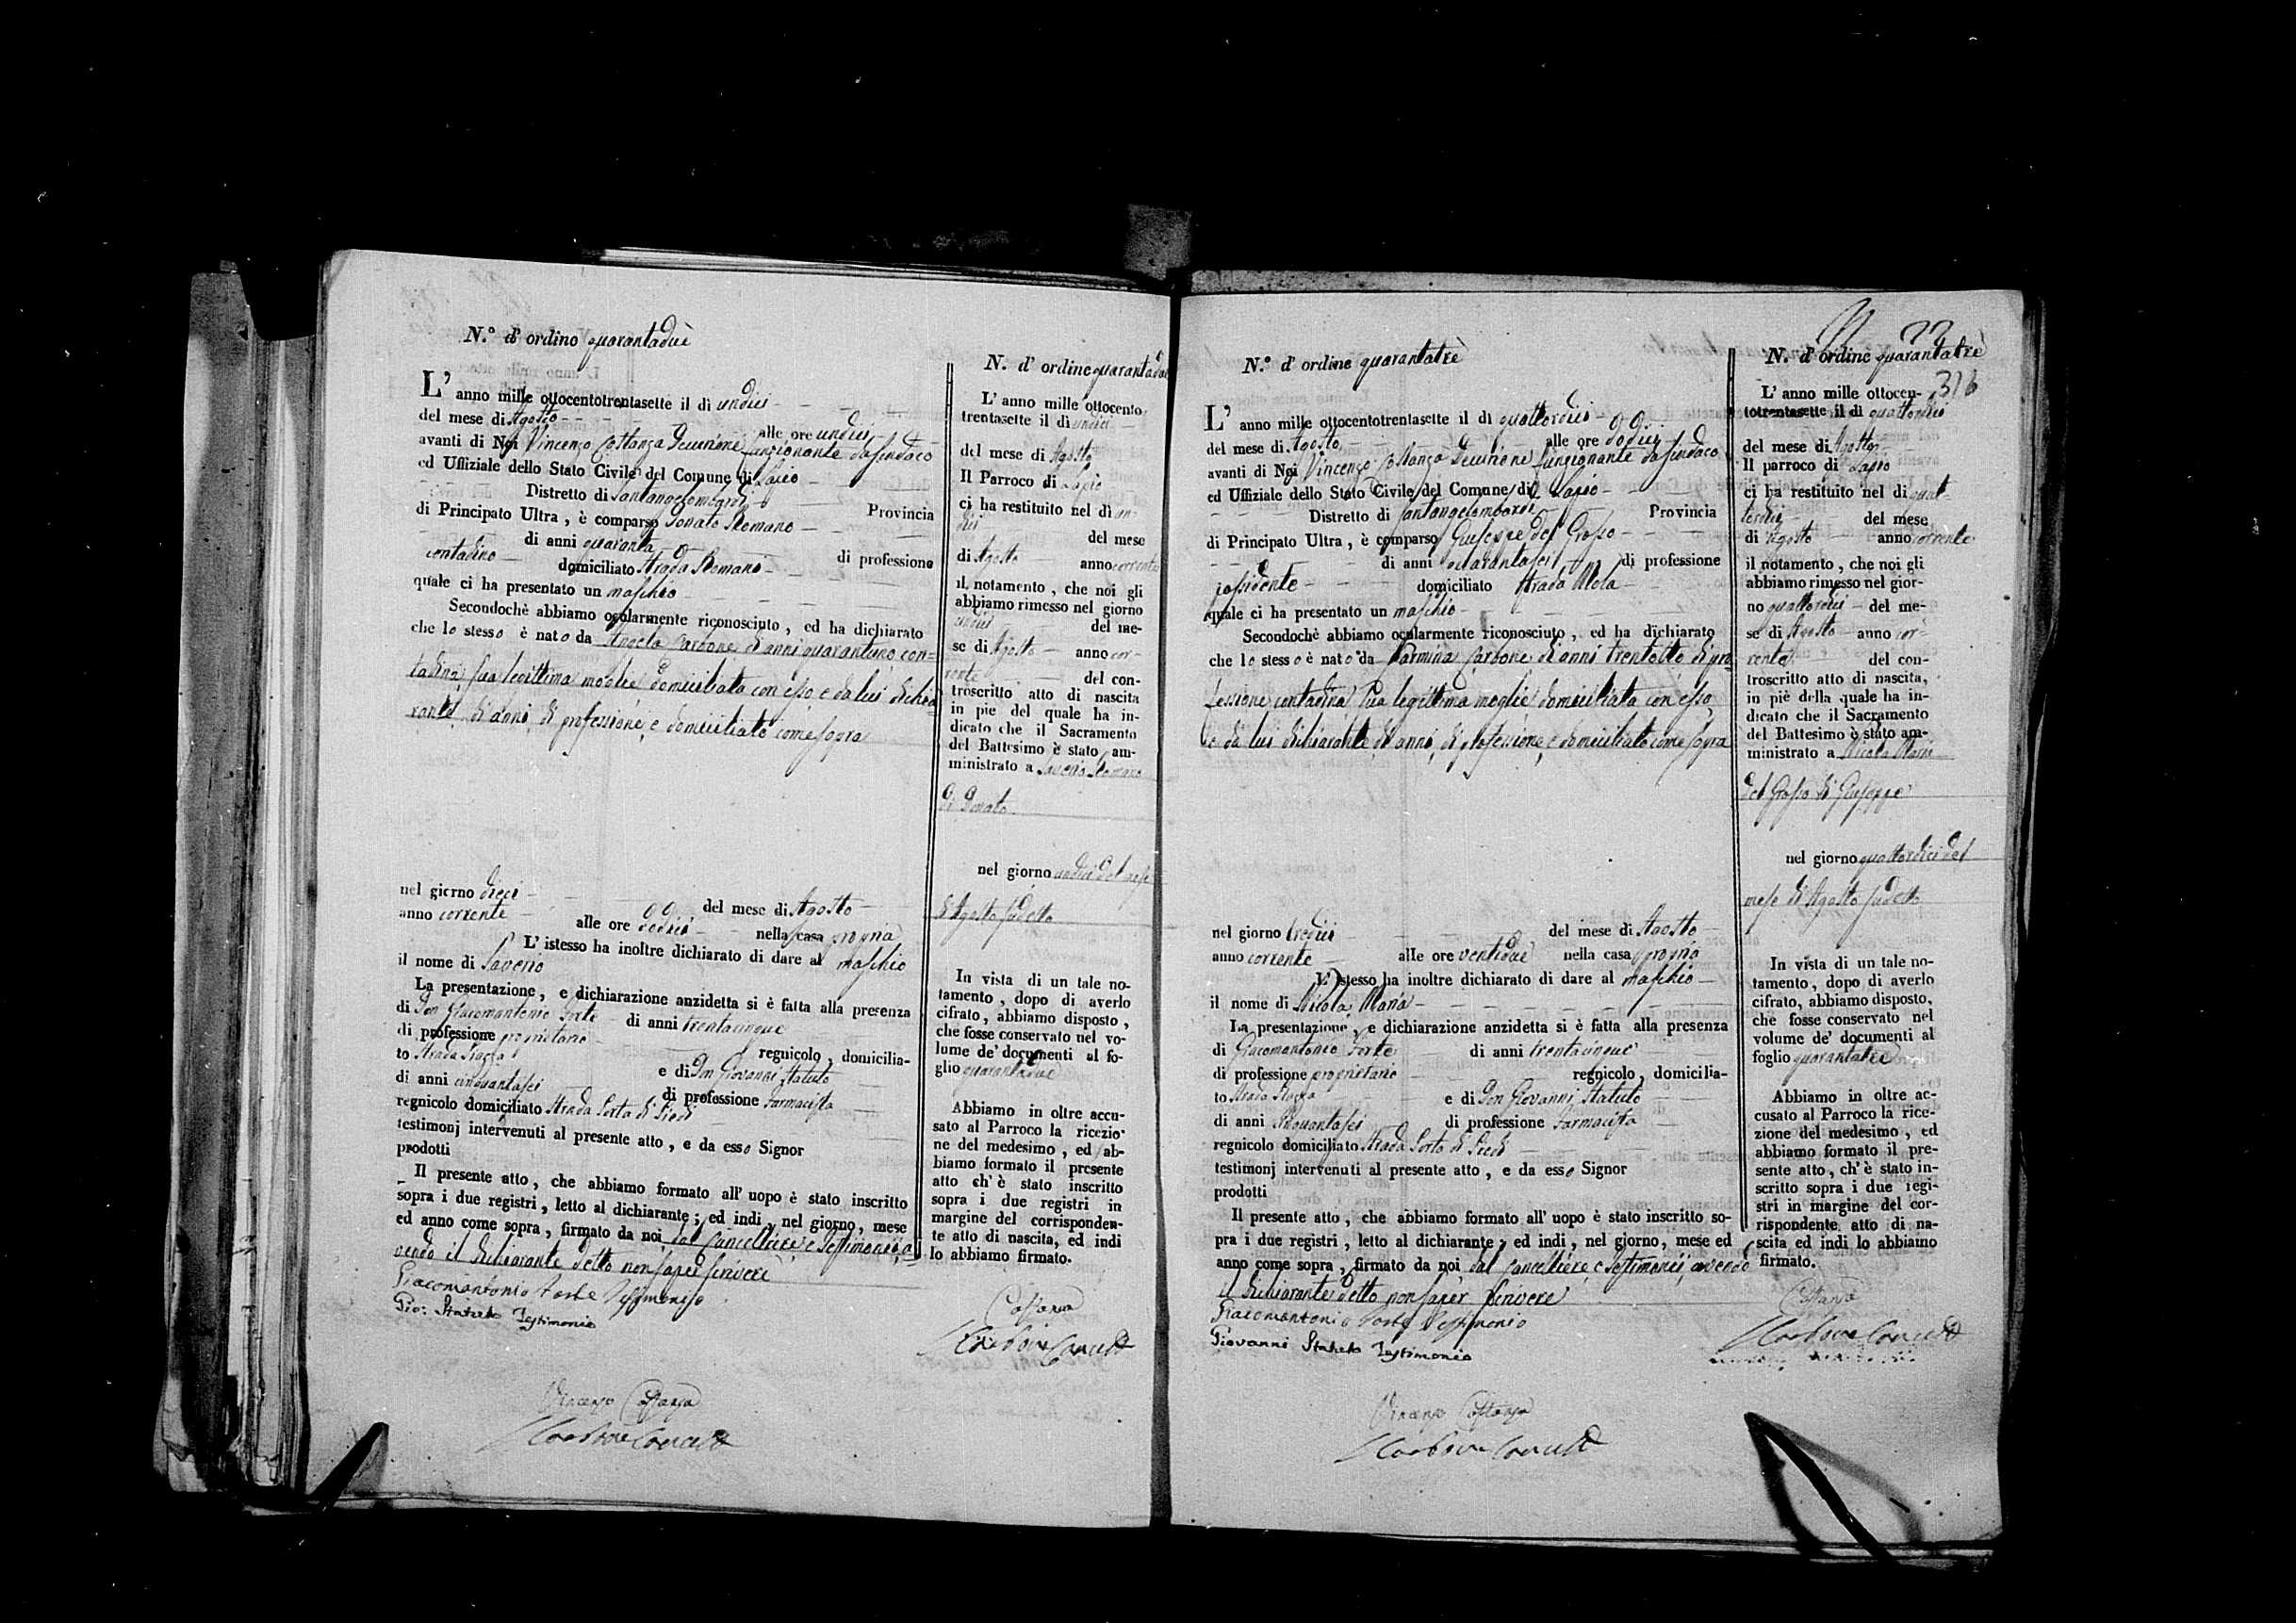 N.° d' ordino quarantaduè
L' anno mille ottocentotrentasette il dì undici
del mese di Agosto alle ore undici
avanti di Noi Vincenzo Costanza Decurione funzionante da Sindaco
ed Uffiziale dello Stato Civile del Comune di Lapio
Distretto di Santangelombardi Provincia
di Principato Ultra, è comparso Donato Romano
di anni quaranta di professione
contadino domiciliato Strada Romano
quale ci ha presentato un maschio
Secondochè abbiamo ocularmente riconosciuto, ed ha dichiarato
che lo stesso è nato da Angela Carbone di anni quarantuno con=
tadina sua legittima moglie domiciliata con esso, e da lui dichia
rante di anni, di professione, e domiciliato come sopra
nel giorno dieci del mese di Agosto
anno corrente alle ore dodici nella casa propria
L' istesso ha inoltre dichiarato di dare al maschio
il nome di Saverio
La presentazione, e dichiarazione anzidetta si è fatta alla presenza
di Don Giacomantonio Forte di anni trentacinque
di professione proprietario regnicolo, domicilia-
to Strada Piazza e di Don Giovanni Statuto
di anni cinquantasei di professione Farmacista
regnicolo domiciliato Strada Porta di Piedi
testimonj intervenuti al presente atto, e da esso Signor
prodotti
Il presente atto, che abbiamo formato all' uopo è stato inscritto
sopra i due registri, letto al dichiarante; ed indi, nel giorno, mese
ed anno come sopra, firmato da noi dal Cancelliere, e Testimonii, a
vendo il dichiarante detto non saper scrivere
Giacomantonio Forte Testimonio
Gio: Statuto Testimonio
Vincenzo Costanza
N. d' ordine quarantadue
L' anno mille ottocento
trentasette il dì undici
del mese di Agosto
Il Parroco di Lapio
ci ha restituito nel dì un-
dici del mese
di Agosto anno corrente
il notamento, che noi gli
abbiamo rimesso nel giorno
undici del me-
se di Agosto anno cor-
rente del con-
troscritto atto di nascita
in piè del quale ha in-
dicato che il Sacramento
del Battesimo è stato am-
ministrato a Saverio Romano
di Donato
nel giorno undici del mese
di Agosto sudetto
In vista di un tale no-
tamento, dopo di averlo
cifrato, abbiamo disposto,
che fosse conservato nel vo-
lume de' documenti al fo-
glio quarantadue
Abbiamo in oltre accu-
sato al Parroco la ricezio-
ne del medesimo, ed ab-
biamo formato il presente
atto ch' è stato inscritto
sopra i due registri in
margine del corrisponden-
te atto di nascita, ed indi
lo abbiamo firmato.
Costanza
N.° d' ordine quarantatrè
L' anno mille ottocentotrentasette il dì quattordici
del mese di Agosto alle ore dodici
avanti di Noi Vincenzo Costanza Decurione funzionante da Sindaco
ed Uffiziale dello Stato Civile del Comune di Lapio
Distretto di Santangelombardi Provincia
di Principato Ultra, è comparso Giuseppe del Grosso
di anni quarantasei di professione
possidente domiciliato Strada Mola
quale ci ha presentato un maschio
Secondochè abbiamo ocularmente riconosciuto, ed ha dichiarato
che lo stesso è nato da Carmina Carbone di anni trentotto di pro
fessione contadina sua legittima moglie domiciliata con esso,
e da lui dichiarante di anni, di professione, e domiciliato come sopra
nel giorno tredici del mese di Agosto
anno corrente alle ore ventidue nella casa propria
L' istesso ha inoltre dichiarato di dare al maschio
il nome di Nicola Maria
La presentazione, e dichiarazione anzidetta si è fatta alla presenza
di Giacomantonio Forte di anni trentacinque
di professione proprietario regnicolo, domicilia-
to Strada Piazza e di Don Giovanni Statuto
di anni cinquantasei di professione Farmacista
regnicolo domiciliato Strada Porta di Piedi
testimonj intervenuti al presente atto, e da esso Signor
prodotti
Il presente atto, che abbiamo formato all' uopo è stato inscritto so-
pra i due registri, letto al dichiarante; ed indi, nel giorno, mese ed
anno come sopra, firmato da noi dal Cancelliere, e Testimonii, avendo
il dichiarante detto non saper scrivere
Giacomantonio Forte Testimonio
Giovanni Statuto Testimonio
Vincenzo Costanza
N. d' ordine quarantatrè
316
L' anno mille ottocen-
totrentasette il dì quattordici
del mese di Agosto
Il parroco di Lapio
ci ha restituito nel dì quat-
tordici del mese
di Agosto anno corrente
il notamento, che noi gli
abbiamo rimesso nel gior-
no quattordici del me-
se di Agosto anno cor-
rente del con-
troscritto atto di nascita,
in piè della quale ha in-
dicato che il Sacramento
del Battesimo è stato am-
ministrato a Nicola Maria
del Grosso di Giuseppe
nel giorno quattordici del
mese di Agosto sudetto
In vista di un tale no-
tamento, dopo di averlo
cifrato, abbiamo disposto,
che fosse conservato nel
volume de' documenti al
foglio quarantatrè
Abbiamo in oltre ac-
cusato al Parroco la rice-
zione del medesimo, ed
abbiamo formato il pre-
sente atto, ch' è stato in-
scritto sopra i due regi-
stri in margine del cor-
rispondente atto di na-
scita ed indi lo abbiamo
firmato.
Costanza